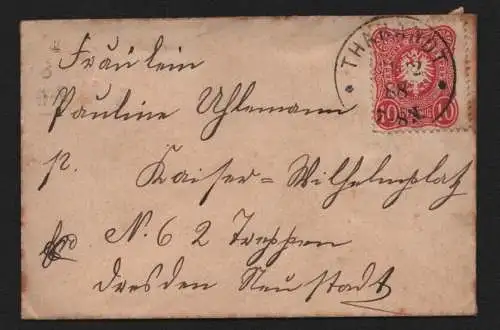 Fräulein
Pauline Uhlemann
p. Kaiser=Wilhelmplatz
N. 6 2 Treppen
Dresden Neustadt
THARANDT
2
88
10 10